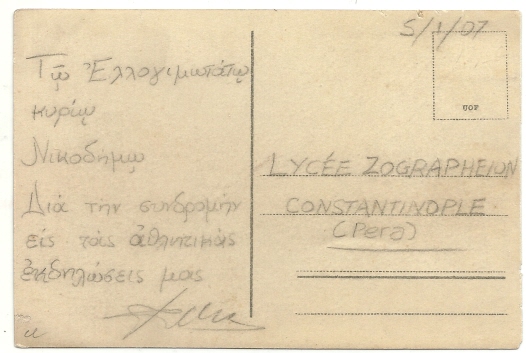 5/1/07
Τῷ Ἐλλογιμωτάτῳ
κυρίῳ
Νικοδήμῳ
Διά τήν συνδρομήν
εἰς τάς ἀθλητικάς
ἐκδηλώσεις μας
LYCÉE ZOGRAPHEION
CONSTANTINOPLE.
(Pera)